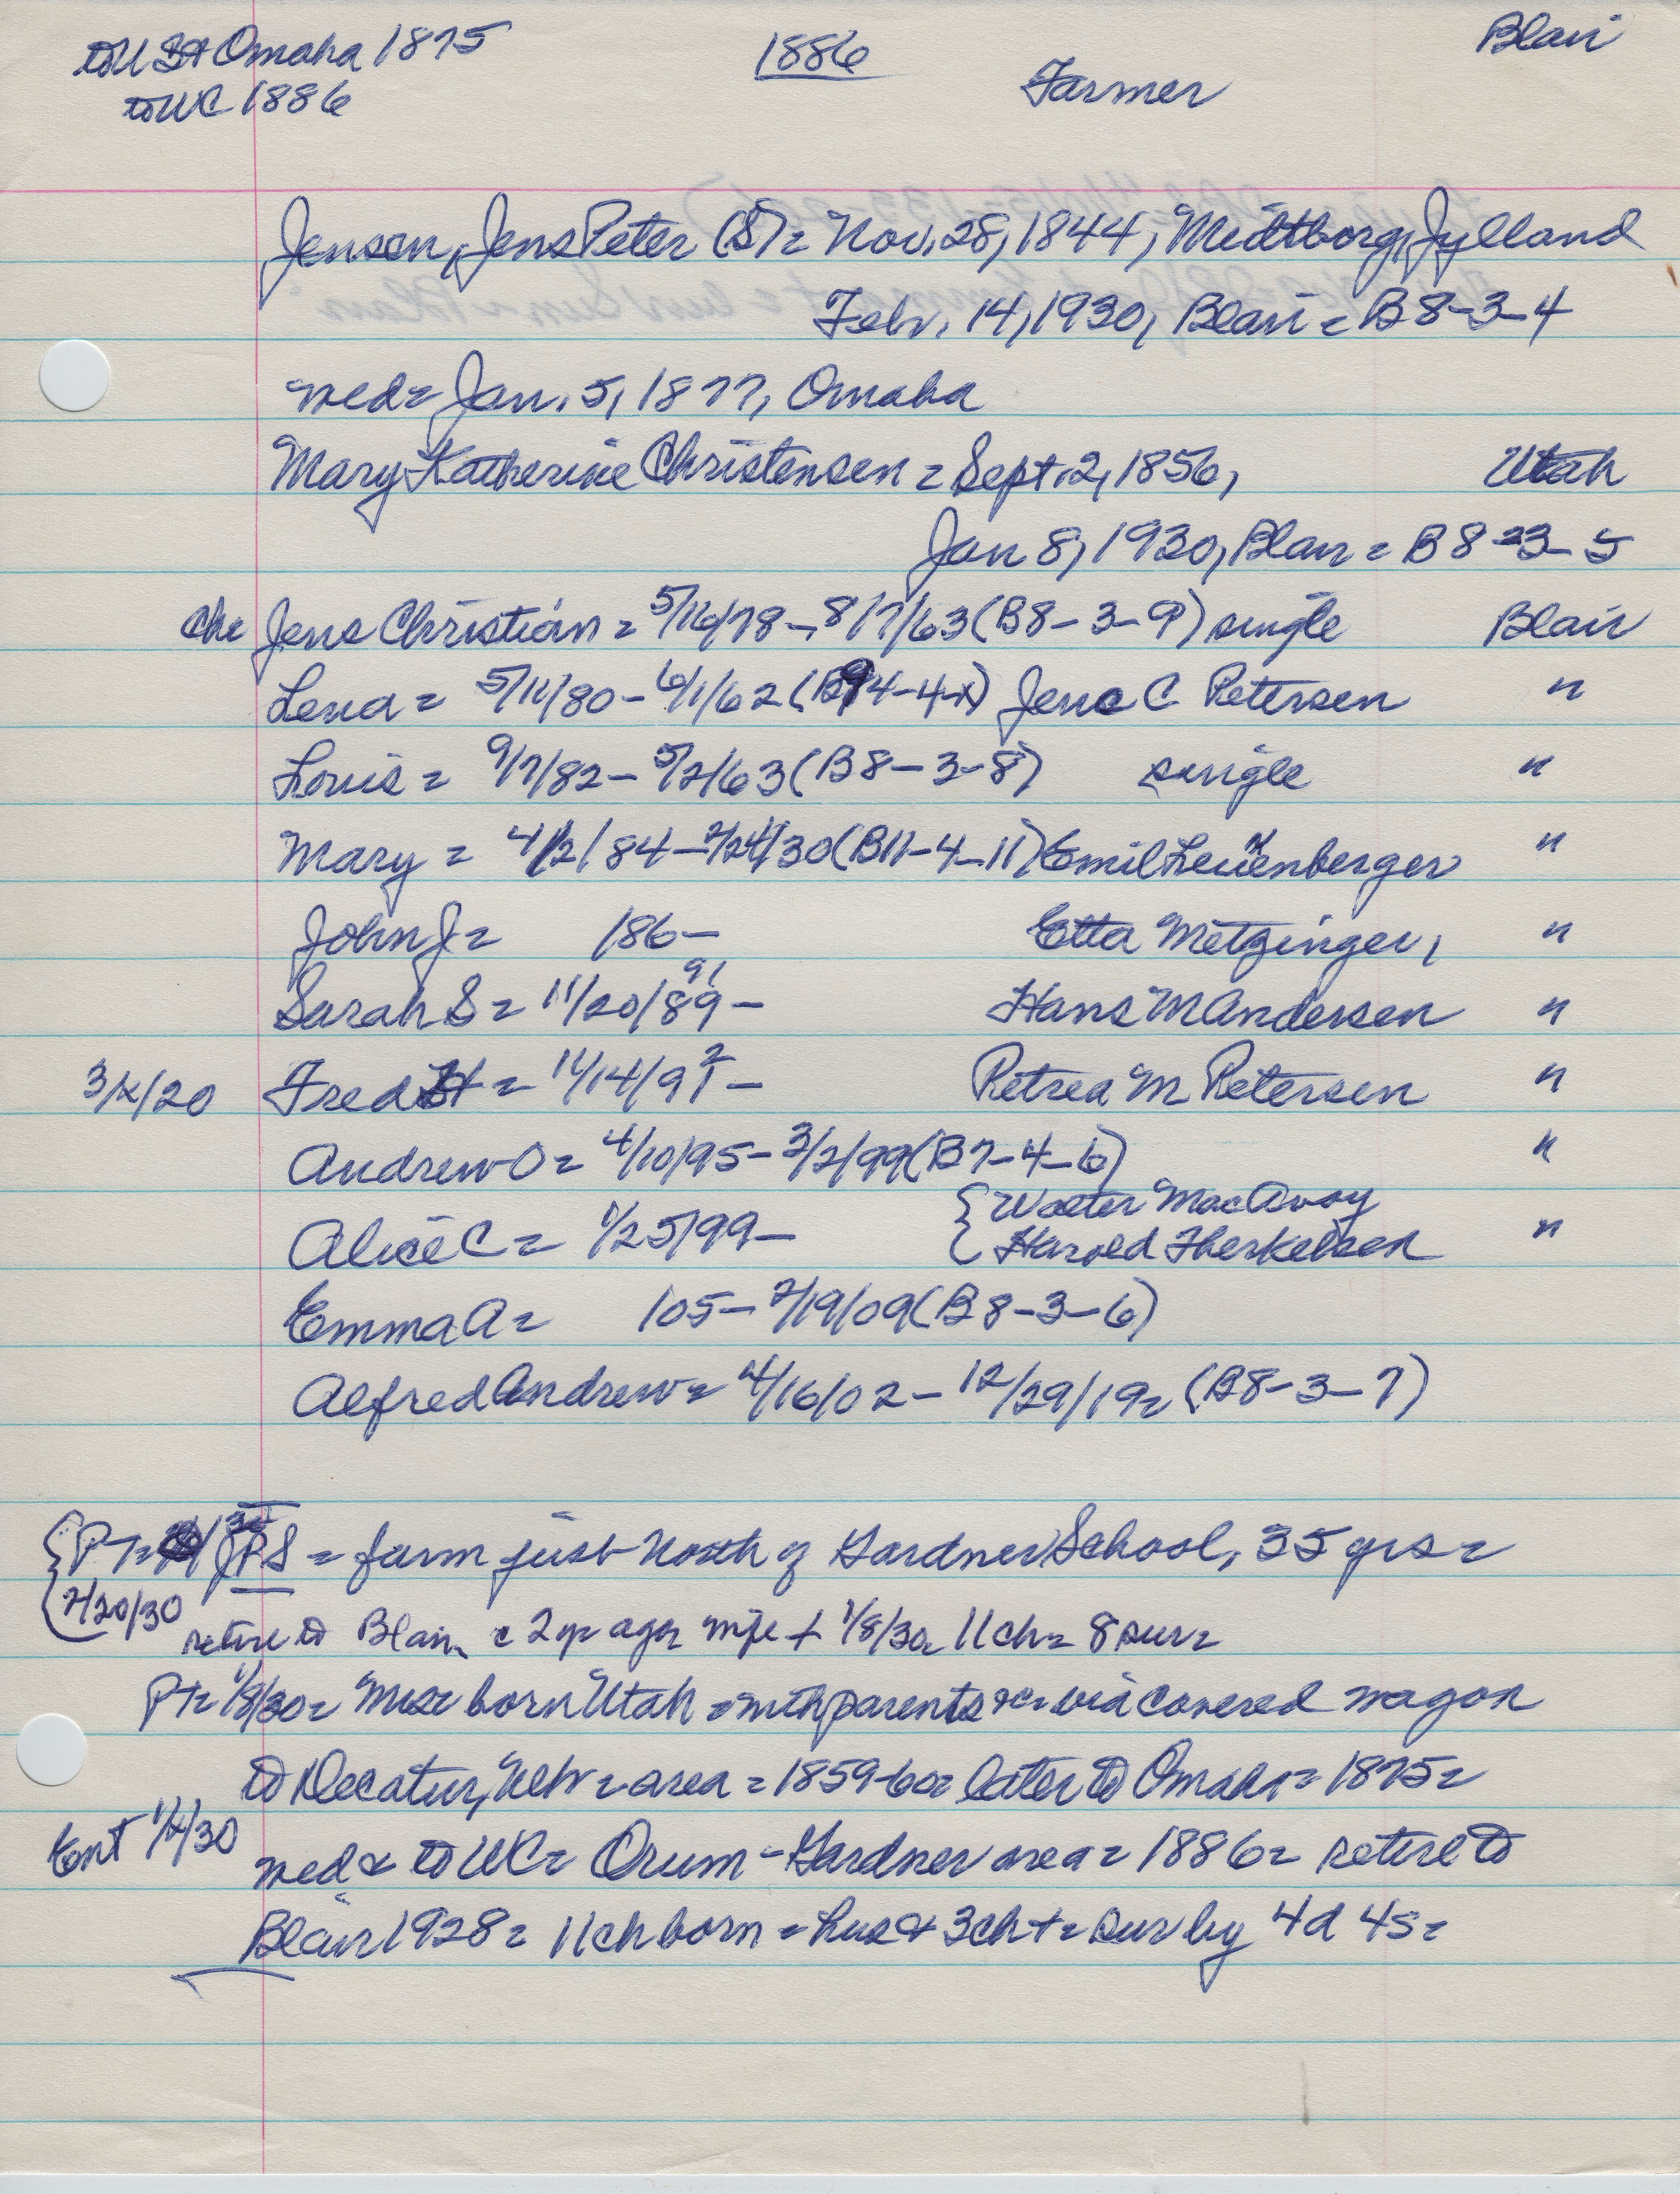 to USA Omaha 1875 1886 Blair
to WC 1886 Farmer
Jensen, Jens Peter (S) = Nov. 28, 1844, Midtborg, Jylland
Febr. 14, 1930, Blair = B8-3-4
wed = Jan. 5, 1877, Omaha
Mary Katherine Christensen = Sept. 2, 1856, Utah
Jan 8, 1930, Blair = B8-3-5
ch= Jens Christian = 5/16/78 - 8/7/63 (B8-3-9) single Blair
Lena = 5/11/80 - 6/1/62 (B94-4-x) Jens C Petersen "
Louis = 9/7/82 - 5/2/63 (B8-3-8) single "
Mary = 4/2/84 - 7/24/30 (B11-4-11) Emil Leuenberger "
John J = /86 - Etta Metzinger, "
Sarah S = 11/20/89 91 - Hans M Andersen "
3/x/20 Fred H = 11/14/91 2 - Petrea M Petersen "
Andrew O = 4/10/95 - 3/2/99 (B7-4-6) "
Alice C = 1/25/99 - { Walter MacAvoy
{ Harold Therkelsen "
Emma A = /05 - 2/19/09 (B8-3-6)
Alfred Andrew = 4/16/02 - 12/29/19 = (B8-3-7)
{ PT = JPS = farm just North of Gardner School, 35 yrs =
{ 2/20/30
retire to Blair c 2 yr ago, wife + 1/8/30 = 11 ch = 8 sur =
PT = 1/8/30 = Mrs = born Utah = with parents via covered wagon
to Decatur, Nebr = area = 1859-60 = later to Omaha = 1875 =
Ent 1/x/30 wed & to WC = Orum-Gardner area = 1886 = retire to
Blair 1928 = 11 ch born = hus & 3 ch + = sur by 4d 4s =